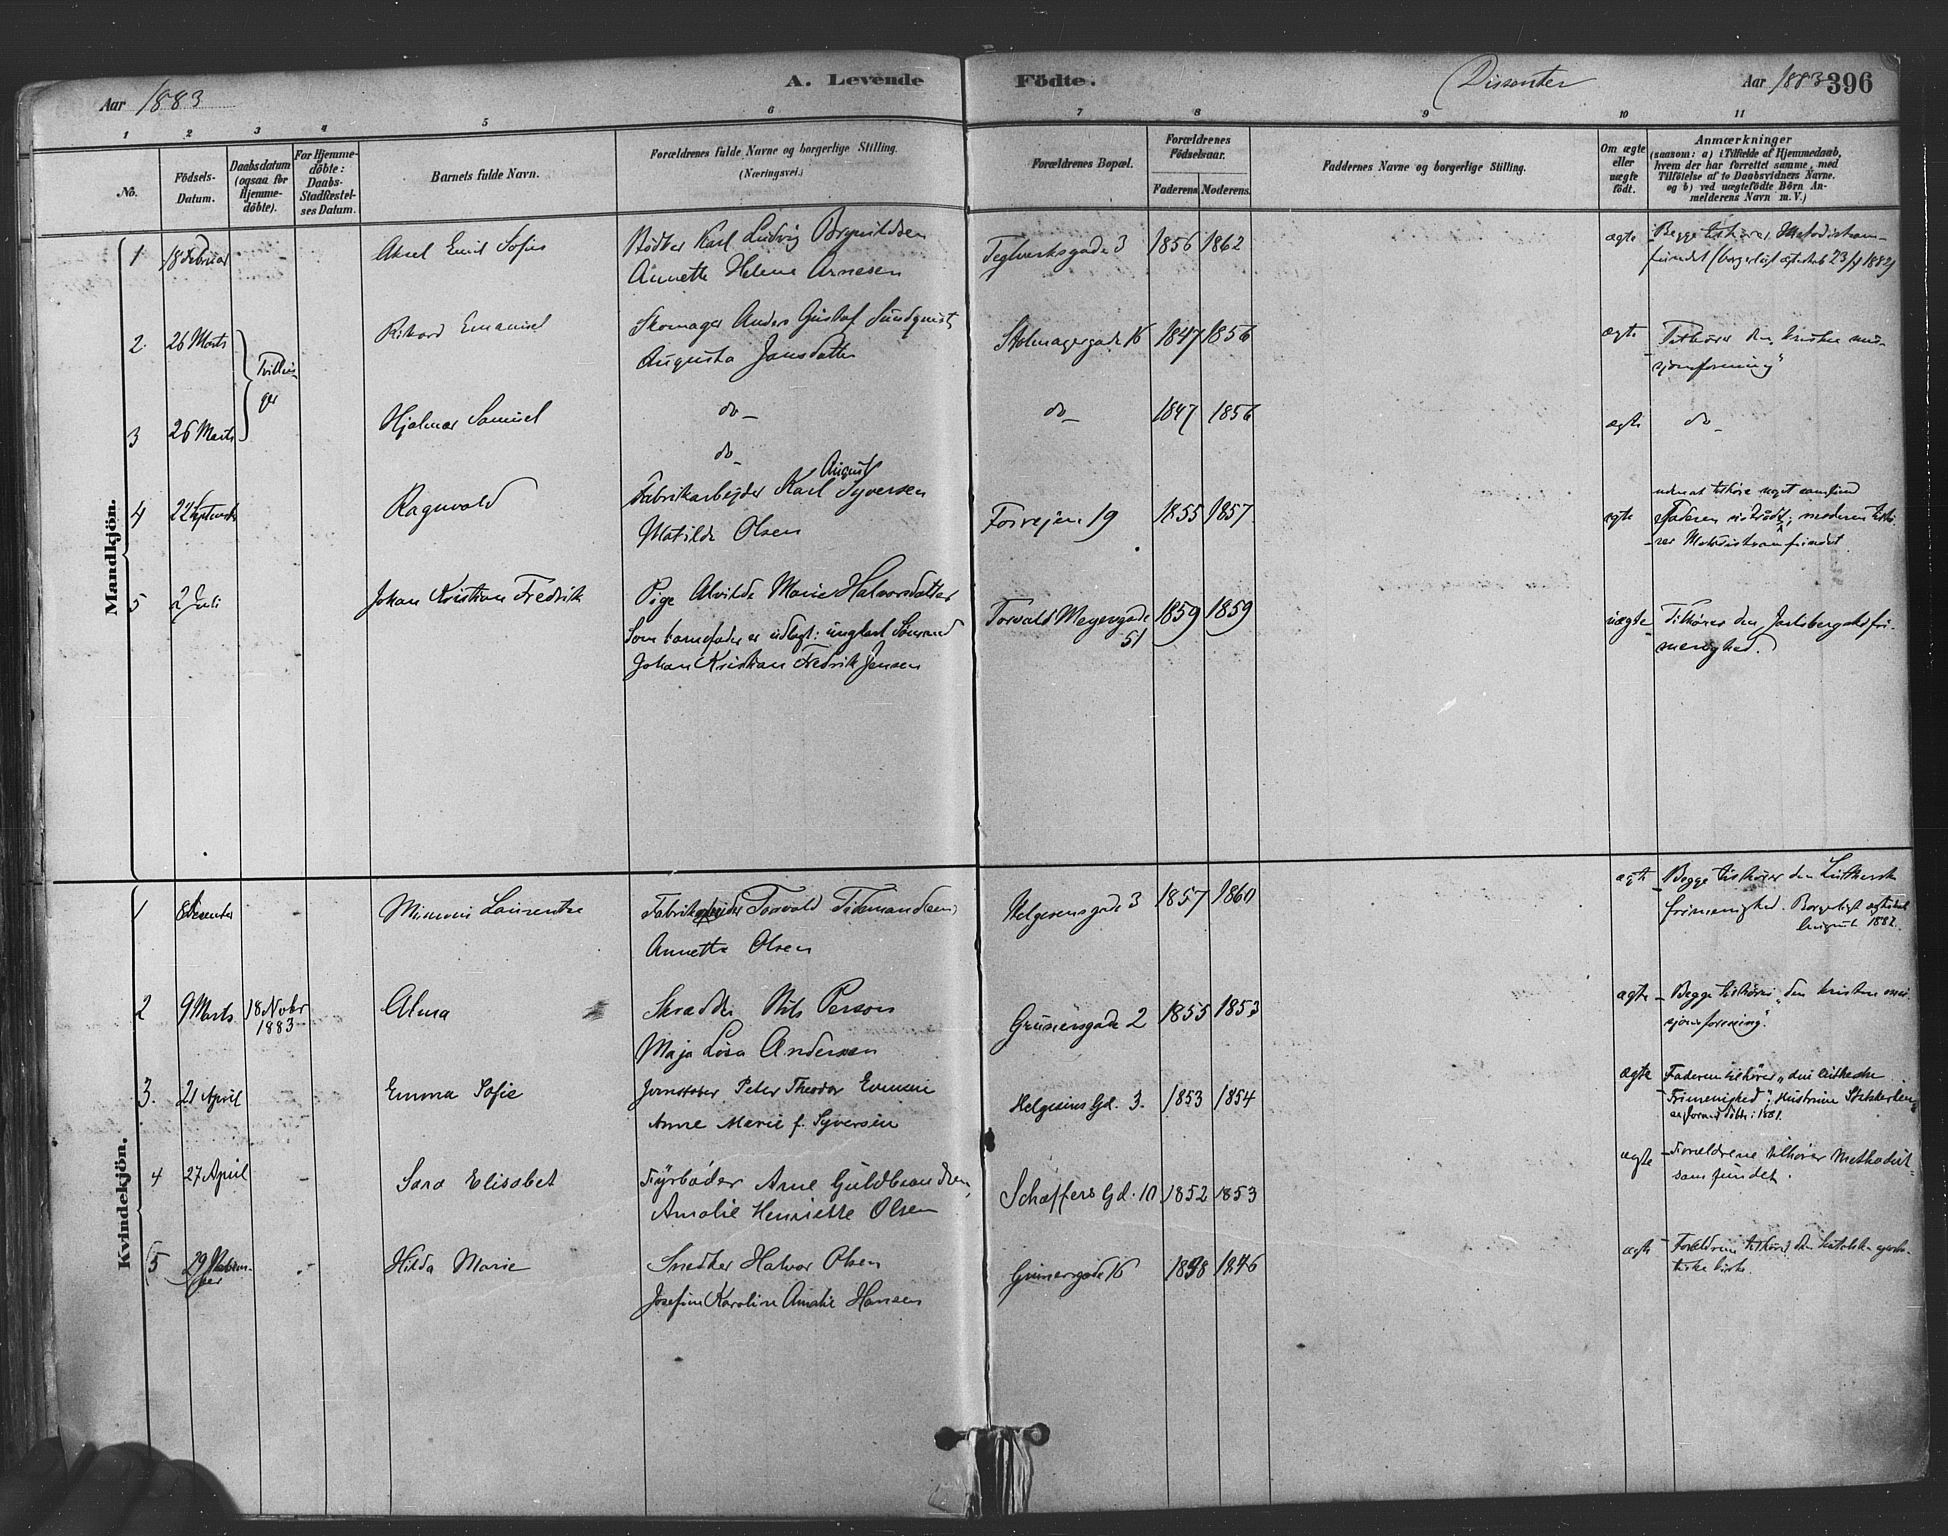 Aar 1883
A. Levende Födte.
Dissenter
Aar 1883
396
1 2 3 4 5 6 7 8 9 10 11
No.
Födsels-Datum.
Daabsdatum (ogsaa for Hjemme-döbte).
For Hjemme-döbte: Daabs-Stadfæstelses Datum.
Barnets fulde Navn.
Forældrenes fulde Navne og borgerlige Stilling. (Næringsvei.)
Forældrenes Bopæl.
Forældrenes Födselsaar.
Faderens. Moderens.
Faddernes Navne og borgerlige Stilling.
Om ægte eller uægte födt.
Anmærkninger
(saasom: a) i Tilfælde af Hjemmedaab, hvem der har forrettet samme, med Tilföielse af to Daabsvidners Navne. og b) ved uægtefödte Börn Anmelderens Navn m. V.)
Mandkjön.
1 18 Februar Aksel Emil Sofus
Karl Ludvig Brynildsen
Annette Helene Arnesen
Teglverksgade 3 1856 1862 ægte
Begge tilhører Metodistsam-
fundet (borgerligt ægteskab 1882)
2. 26 Marts Rikard Emanuel
Skomager Anders Gustaf Sundquist
Augusta Jansdatter
16 1847 1856 ægte
Tilhører "den kristne mis-
sjonsforening"
Tvillin-
ger
3 26 Marts Hjalmar Samuel
do
do
do 1847 1856 ægte do
4 22 September Ragnvald
Fabrikarbejder Karl August Syversen
Matilde Olsen
Fosvejen 19 1855 1857 ægte
uden at tilhøre noget samfund
Faderen udtrådt; moderen tilhø-
rer Metodistsamfundet.
5 2 Juli Johan Kristian Fredrik
Pige Alvilde Marie Halvorsdatter
Som barnefader er udlagt: ungkarl
Johan Kristian Fredrik Jensen
Torvald Meyersgade
51
1859 1859 uægte
Tilhører den Jarlsbergske fri-
menighed.
Kvindekjön.
1 Laurentze
Fabrikarbeider Torvald Tidemandsen
Annette Olsen
Helgesensgade 3 1857 1860 ægte
Begge tilhører den Lutherske
frimenighed. Borgerligt ægteskab
August 1882.
2 9 Marts 18 Novbr
1883
Alma
Skrædder Nils Person
Maja Lisa Andersen
Grünersgade 2 1855 1853 ægte
Begge tilhører "den kristne mis-
sjonsforening".
3. 21 April Emma Sofie
Jernstøber Peter Theodor
Anne Marie f. Syversen
Helgesens Gd. 3. 1853 1854 ægte
Faderen tilhører "den lutherske
Frimenighed"; Hustruen Statskirken
4 27 April Sara Elisabet
Fyrbøder Arne Guldbrandsen,
Amalie Henriette Olsen
Schæffers Gd. 10 1852 1853 ægte
Forældrene tilhører Methodist-
samfundet.
5 29
Hilda Marie
Snedker Halvor Olsen
Josefine Karoline Amalie Hansen
Grünersgade 16 1846 ægte
Forældrene tilhører den katolsk aposto-
liske kirke.